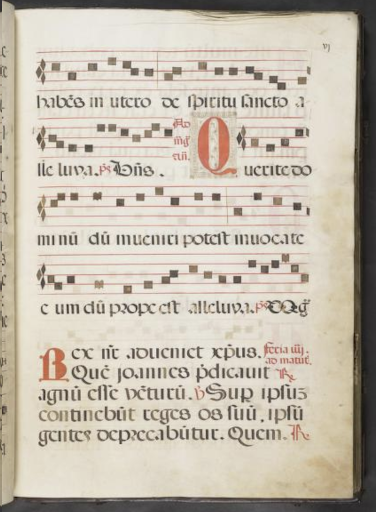 vj
habēs in utero de spiritu sancto a
lle luya. ps Dñs. Ad mg tiū. Querite do
minū dū inueniri potest inuocate
e um dū prope est alleluya. ps
Rex nr̄ adueniet xp̄us. feria iiii. ad matut̄.
Quē joannes p̄dicauit R
agnū esse vēturū. V Sup ipsuz
continebūt reges os suū, ipsū
gentes deprecabūtur. Quem. R